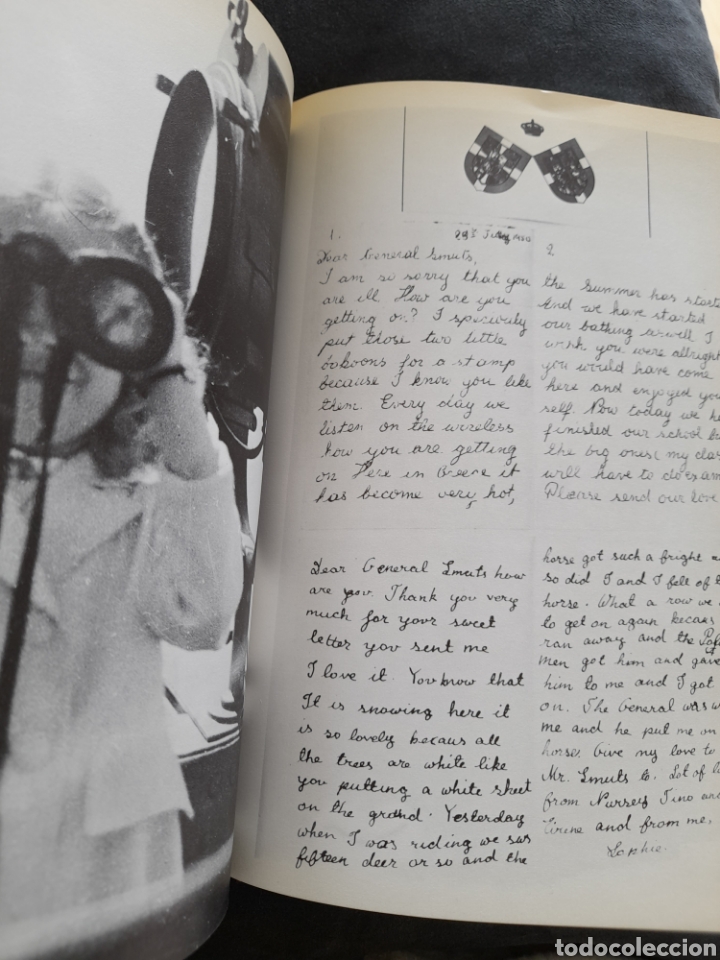 1.
29th July 1950
Dear General Smuts,
I am so sorry that you
are ill How are you
getting on? I speciouly
put those two little
booboons for a stamp
because I know you like
them. Every day we
listen on the wireless
how you are getting
on Here in Greece it
has become very hot,
2.
the summer has starte
And we have started
our bathing as well I
wish you were allright
you would have come
here and enjoyed you
self. Now today we ha
finished our school bu
the big ones; my clas
will have to do exam
Please send our love
Dear General Smuts how
are you. Thank you very
much for your sweet
letter you sent me
I love it. You know that
It is snowing here it
is so lovely becaus all
the trees are white like
you putting a white sheet
on the ground. Yesterday
when I was riding we saw
fifteen deer or so and the
horse got such a fright
so did I and I fell of
horse. What a row we
to get on again becaus
ran away and the
men got him and gave
him to me and I got
on. The General was w
me and he put me on
horse. Give my love to
Mr. Smuts to. Lot of lo
from Nursey Tino and
Irine and from me,
Sophie.
todocoleccion